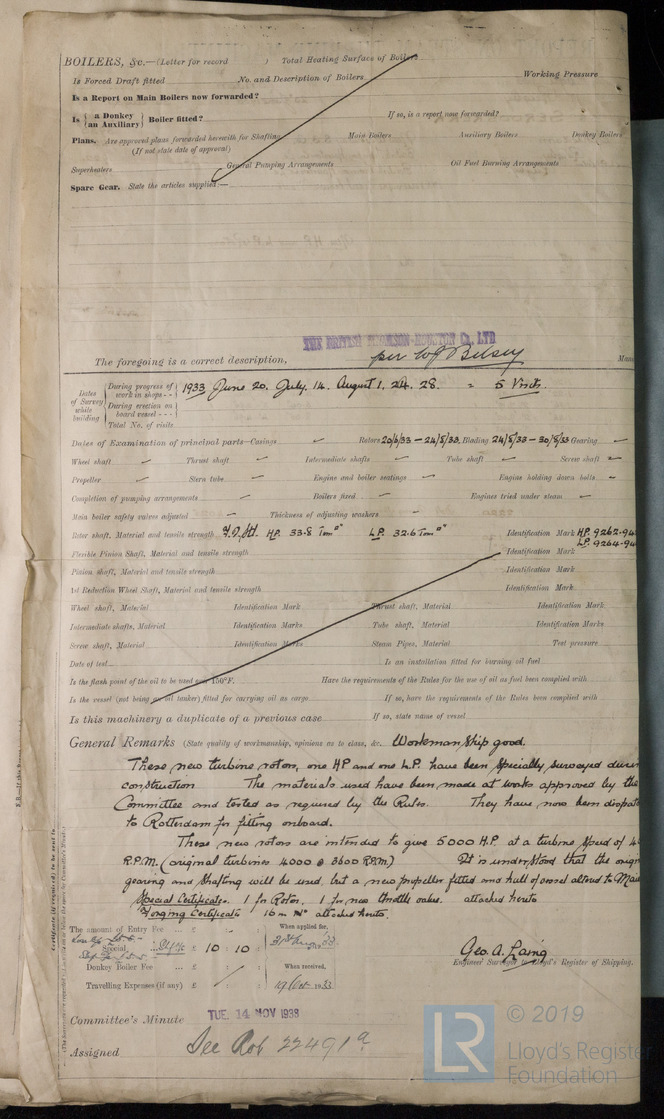 BOILERS, &c.—(Letter for record ) Total Heating Surface of Boilers
Is Forced Draft fitted No. and Description of Boilers Working Pressure
Is a Report on Main Boilers now forwarded?
Is { a Donkey / an Auxiliary } Boiler fitted? If so, is a report now forwarded?
Plans. Are approved plans forwarded herewith for Shafting Main Boilers Auxiliary Boilers Donkey Boilers
(If not state date of approval)
Superheaters General Pumping Arrangements Oil Fuel Burning Arrangements
Spare Gear. State the articles supplied:—
THE BRITISH THOMSON-HOUSTON Co., LTD
The foregoing is a correct description, per
Dates of Survey while building
During progress of work in shops - - 1933 June 20. July, 14. August 1, 24. 28. = 5 Visits.
During erection on board vessel - - -
Total No. of visits
Dates of Examination of principal parts—Casings Rotors 20/6/33 — 24/8/33. Blading 24/8/33 — 30/8/33 Gearing
Wheel shaft Thrust shaft Intermediate shafts Tube shaft Screw shaft
Propeller Stern tube Engine and boiler seatings Engine holding down bolts
Completion of pumping arrangements Boilers fixed Engines tried under steam
Main boiler safety valves adjusted Thickness of adjusting washers
Rotor shaft, Material and tensile strength HP. 33.8 Ton □" LP. 32.6 Ton □" Identification Mark HP. 9262-94
LP. 9264-94
Flexible Pinion Shaft, Material and tensile strength Identification Mark
Pinion shaft, Material and tensile strength Identification Mark
1st Reduction Wheel Shaft, Material and tensile strength Identification Mark
Wheel shaft, Material Identification Mark Thrust shaft, Material Identification Mark
Intermediate shafts, Material Identification Marks Tube shaft, Material Identification Marks
Screw shaft, Material Identification Marks Steam Pipes, Material Test pressure
Date of test Is an installation fitted for burning oil fuel
Is the flash point of the oil to be used over 150°F. Have the requirements of the Rules for the use of oil as fuel been complied with
Is the vessel (not being an oil tanker) fitted for carrying oil as cargo If so, have the requirements of the Rules been complied with
Is this machinery a duplicate of a previous case If so, state name of vessel
General Remarks (State quality of workmanship, opinions as to class, &c. Workmanship good.
These new turbine rotors, one HP and one L.P. have been specially surveyed durin
construction The materials used have been made at works approved by the
Committee and tested as required by the Rules. They have now been dispat
to Rotterdam for fitting onboard.
These new rotors are intended to give 5000 H.P. at a turbine speed of 4
R.P.M. (original turbines 4000 @ 3600 R.P.M.) It is understood that the origin
gearing and shafting will be used, but a new propeller fitted and hull of vessel altered to
Special Certificates. 1 for Rotor. 1 for new throttle valve. attached hereto
Forging Certificate 16 in No attached hereto.
The amount of Entry Fee ... £ : : When applied for,
Special ... £ 10 : 10 : 31st Aug '33
Donkey Boiler Fee ... £ : : When received,
Travelling Expenses (if any) £ : : 19 Oct 1933
Geo. A. Laing
Engineer Surveyor to Lloyd's Register of Shipping.
Committee's Minute TUE. 14 NOV 1933
Assigned See Rot 22491a
LR © 2019
Lloyd's Register
Foundation